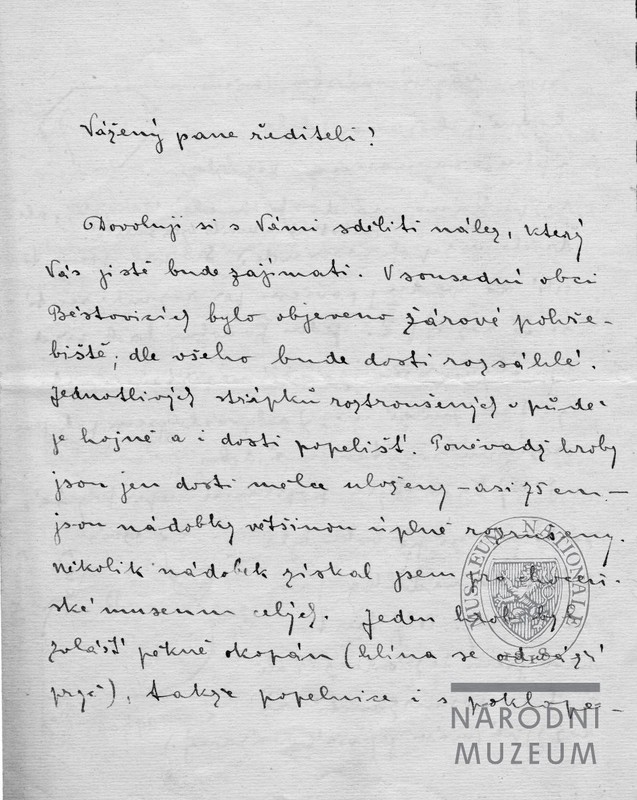 Vážený pane řediteli!
Dovoluji si s Vámi sděliti nález, který
Vás jistě bude zajímati. V sousední obci
Běstovicích bylo objeveno žárové pohře-
biště; dle všeho bude dosti rozsáhlé.
Jednotlivých strápků roztroušených v půdě
je hojně a i dosti popelišť. Poněvadž hroby
jsou jen dosti mělce uloženy – asi 75 cm. –
jsou nádobky většinou úplně rozrušeny.
Několik nádobek získal jsem pro choceň-
ské museum celých. Jeden hrob byl
zvlášť pěkně okopán (hlína se odváží
pryč), takže popelnice i s poklope-
MUSEUM NATIONALE
NÁRODNÍ
MUZEUM